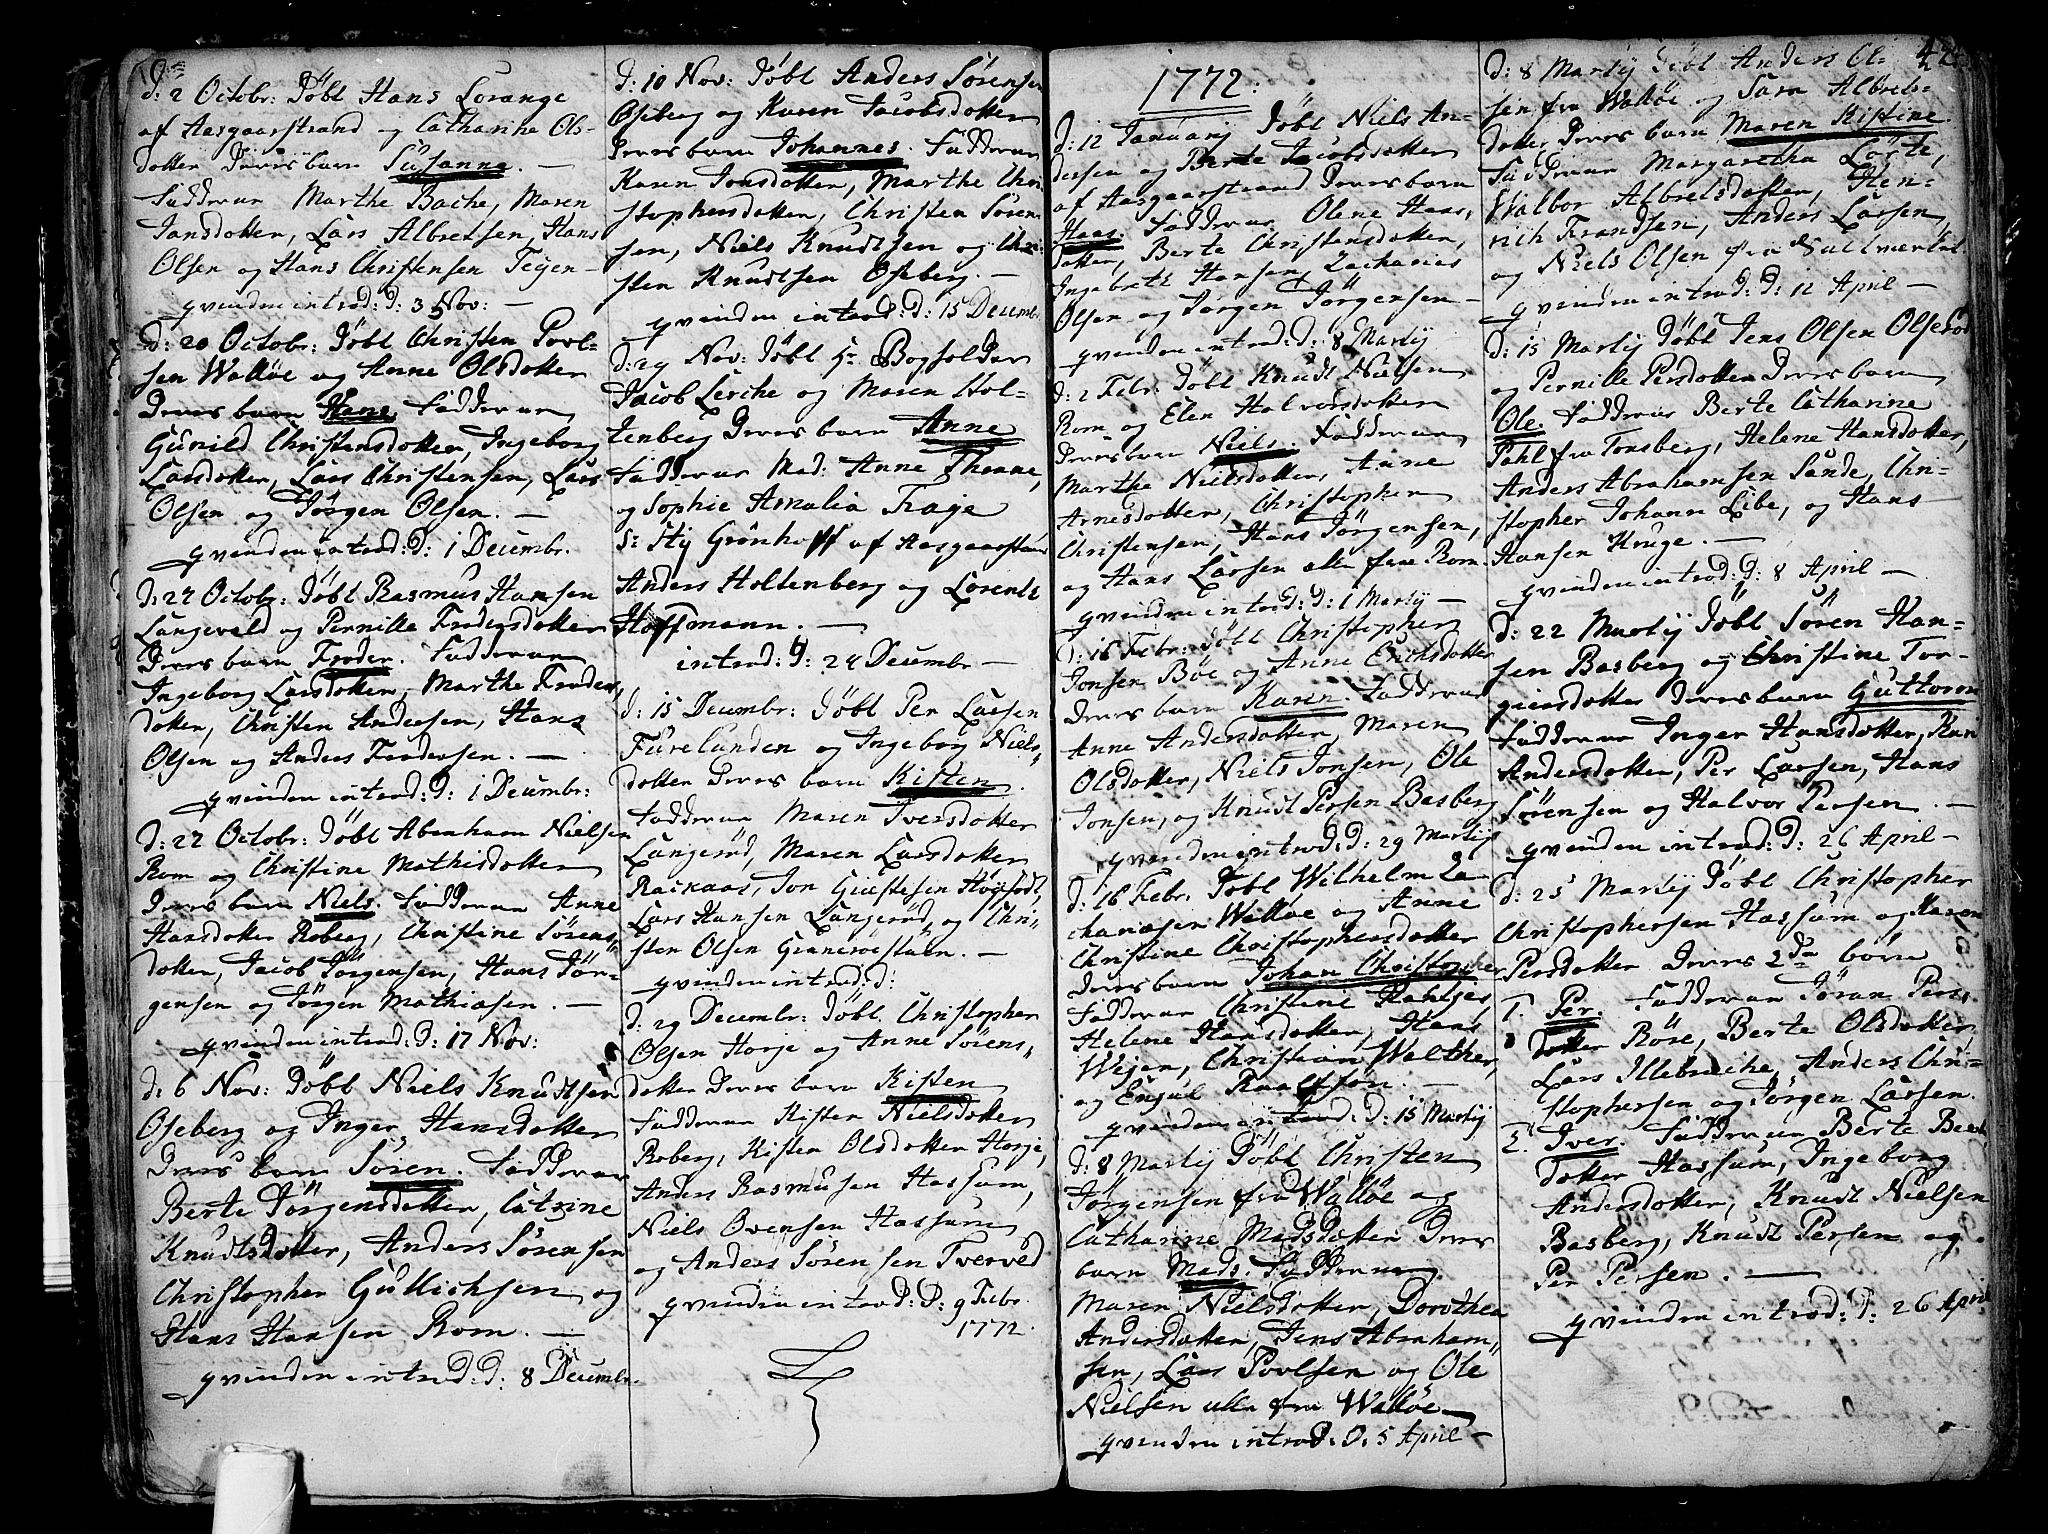 d: 2 Octobr: Döbt Hans Lorange
af Aasgaarstrand og Catharine Ols-
dotter Deres barn Susanna. —
Fadderne Marthe Bache, Maren
Jansdotter, Lars Albretsen, Hans
Olsen og Hans Christensen Teyen-
qvinden introd: d: 3 Nov: —
d: 20 Octobr: Döbt Christen Povl-
sen Walløe og Anne Olsdotter
Deres barn Hans. Fadderne
Gunild Christensdotter, Ingeborg
Larsdotter, Lars Christensen, Lars
Olsen og Jörgen Olsen. —
qvinden introd: d: 1 Decembr.
d: 27 Octobr: Döbt Rasmus Hansen
Langevald og Pernille Frodersdotter
Deres barn Froder. Fadderne
Ingeborg Larsdotter, Marthe Froders-
dotter, Christen Andersen, Hans
Olsen og Anders Frodersen. —
qvinden introd: d: 1 Decembr:
d: 27 Octobr: Döbt Abraham Nielsen
Rom og Christine Mathisdotter
Deres barn Niels. Fadderne Anne
Hansdotter Roberg, Christine Sörens-
dotter, Jacob Jörgensen, Hans Jör-
gensen og Jörgen Mathiasen. —
qvinden introd: d: 17 Nov:
d: 6 Nov: Döbt Niels Knudtsen
Oseberg og Inger Hansdotter
Deres barn Sören. Fadderne
Berte Jörgensdotter, Catrine
Knudtsdotter, Anders Sörensen
Christopher Gullichsen og
Hans Hansen Rom. —
qvinden introd: d: 8 Decembr.
d: 10 Nov: Döbt Anders Sörensen
Oseberg og Karen Jacobsdotter
Deres barn Johannes. Fadderne
Karen Jonsdotter, Marthe Chri-
stophersdotter, Christen Sören-
sen, Niels Knudtsen og Chri-
sten Knudtsen Oseberg. —
qvinden introd: d: 15 Decembr
d: 29 Nov: Döbt Hr Bogholder
Jacob Lerche og Maren Hol-
tenberg Deres barn Anne
Fadderne Mad: Anne Thenne,
og Sophie Amalia Trage
Sr Sty Grönhoff af Aasgaarstrand
Anders Holtenberg og Lorents
Hoffmann. —
introd: d: 24 Decembr —
d: 15 Decembr: Döbt Per Larsen
Furelunden og Ingeborg Niels-
dotter Deres barn Kisten.
Fadderne Maren Iversdotter
Langeröd, Maren Larsdotter
Raskaas, Jon Giustesen Högsödt,
Lars Hansen Langeröd, og Chri-
sten Olsen Graneröestuen. —
qvinden introd: d:
d: 29 Decembr: Döbt Christopher
Olsen Horje og Anne Sörens-
dotter Deres barn Kisten
Fadderne Kisten Nielsdotter
Roberg, Kisten Olsdotter Horje,
Anders Rasmusen Hassum,
Niels Ovensen Hassum
og Anders Sörensen Tverved
qvinden introd: d: 9 Febr.
1772.
1772:
d: 12 Januarij Döbt Niels An-
dersen og Berte Jacobsdotter
af Aasgaarstrand Deres barn
Haas. Fadderne Olene Haas,
dotter, Berte Christensdotter,
Ingebret Hansen, Zacharias
Olsen og Jörgen Jörgensen —
qvinden introd: d: 8 Martij
d: 2 Febr. Döbt Knudt Nielsen
Rom og Elen Halvorsdotter
Deres barn Niels. Fadderne
Marthe Nielsdotter, Anne
Arnesdotter, Christopher
Christensen, Hans Jörgensen,
og Hans Larsen alle fra Rom.
qvinden introd: d: 1 Martij —
d: 16 Febr: Döbt Christopher
Jonsen Böe og Anne Erichsdotter
Deres barn Karen. Fadderne
Anne Andersdotter, Maren
Olsdotter, Niels Jonsen, Ole
Jonsen, og Knudt Persen Basberg
qvinden introd: d: 29 Martij
d: 16 Febr. Döbt Wilhelm Za-
chariæsen Walløe og Anne
Christine Christophersdotter
Deres barn Johan Christopher
Fadderne Christine
Helene Hansdotter, Hans
Wejer, Christian Walther,
og Engul
qvinden introd: d: 15 Martij
d: 8 Martij Döbt Christen
Jörgensen fra Walløe og
Catharine Madsdotter Deres
barn Mads. Fadderne
Maren Nielsdotter, Dorothea
Andersdotter, Jens Abraham-
sen, Lars Povlsen og Ole
Nielsen alle fra Walløe —
qvinden introd: d: 5 April —
d: 8 Martij Döbt Anders Ol-
sen fra Walløe og Sara Albrets-
dotter Deres barn Maren Kistine
Fadderne Margaretha Lörte,
Walbor Albretsdotter, Hen-
rich Frandsen, Anders Larsen,
og Niels Olsen fra Saltværket
qvinden introd: d: 12 April —
d: 15 Martij Döbt Jens Olsen
og Pernille Persdotter Deres barn
Ole. Fadderne Berte Catharine
Pahl fra Tonsberg, Helene Hansdotter,
Anders Abrahamsen Sande, Chri-
stopher Johann Libe, og Hans
Hansen Kruge. —
qvinden introd: d: 8 April —
d: 22 Martij Döbt Sören Han-
sen Basberg og Christine Tor-
giersdotter Deres barn Guttorm
Fadderne Inger Hansdotter, Kari
Andersdotter, Per Larsen, Hans
Sörensen og Halvor Persen. —
qvinden introd: d: 26 April —
d: 25 Martij Döbt Christopher
Christophersen Hassum og Karen
Persdotter Deres 2de börn
1. Per. Fadderne Jöran Pers-
dotter Röse, Berte Olsdotter
Lars Illebrache, Anders Chri-
stophersen og Jörgen Larsen.
2. Iver. Fadderne Berte
dotter Hassum, Ingeborg
Andersdotter, Knudt Nielsen
Basberg, Knudt Persen og
Per Persen. —
qvinden introd: d: 26 April